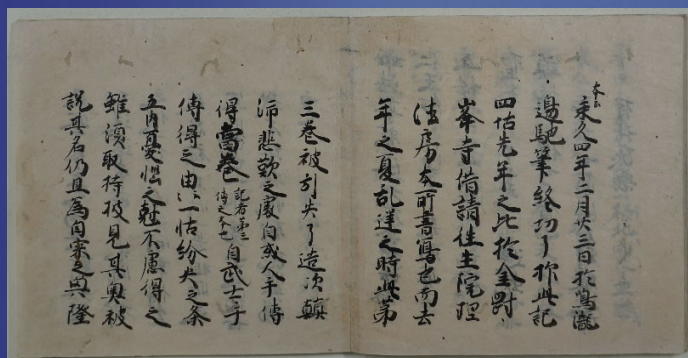 本云
承久四年二月廿三日於鳴瀧
邊馳筆終功了抑此記
四帖先年之比於金剛
峯寺借請往生院理
法房本所書寫也而去
年之夏乱逆之時此第
三巻被引失了造次顛
沛悲歎之處自或人手傳
得當巻自武士手
傳得之由一帖紛失之条
五内憂惱之尅不慮得之
雖須取持披見其奥被
説其名仍且為自宗之興隆